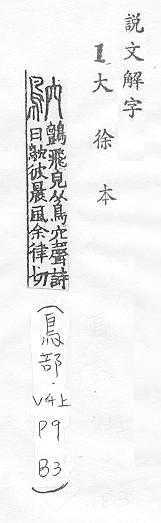 說文解字
1大徐本
鴥
鸇飛皃从鳥穴聲詩
曰鴥彼晨風余律切
(鳥部.V4上 P9 B3)